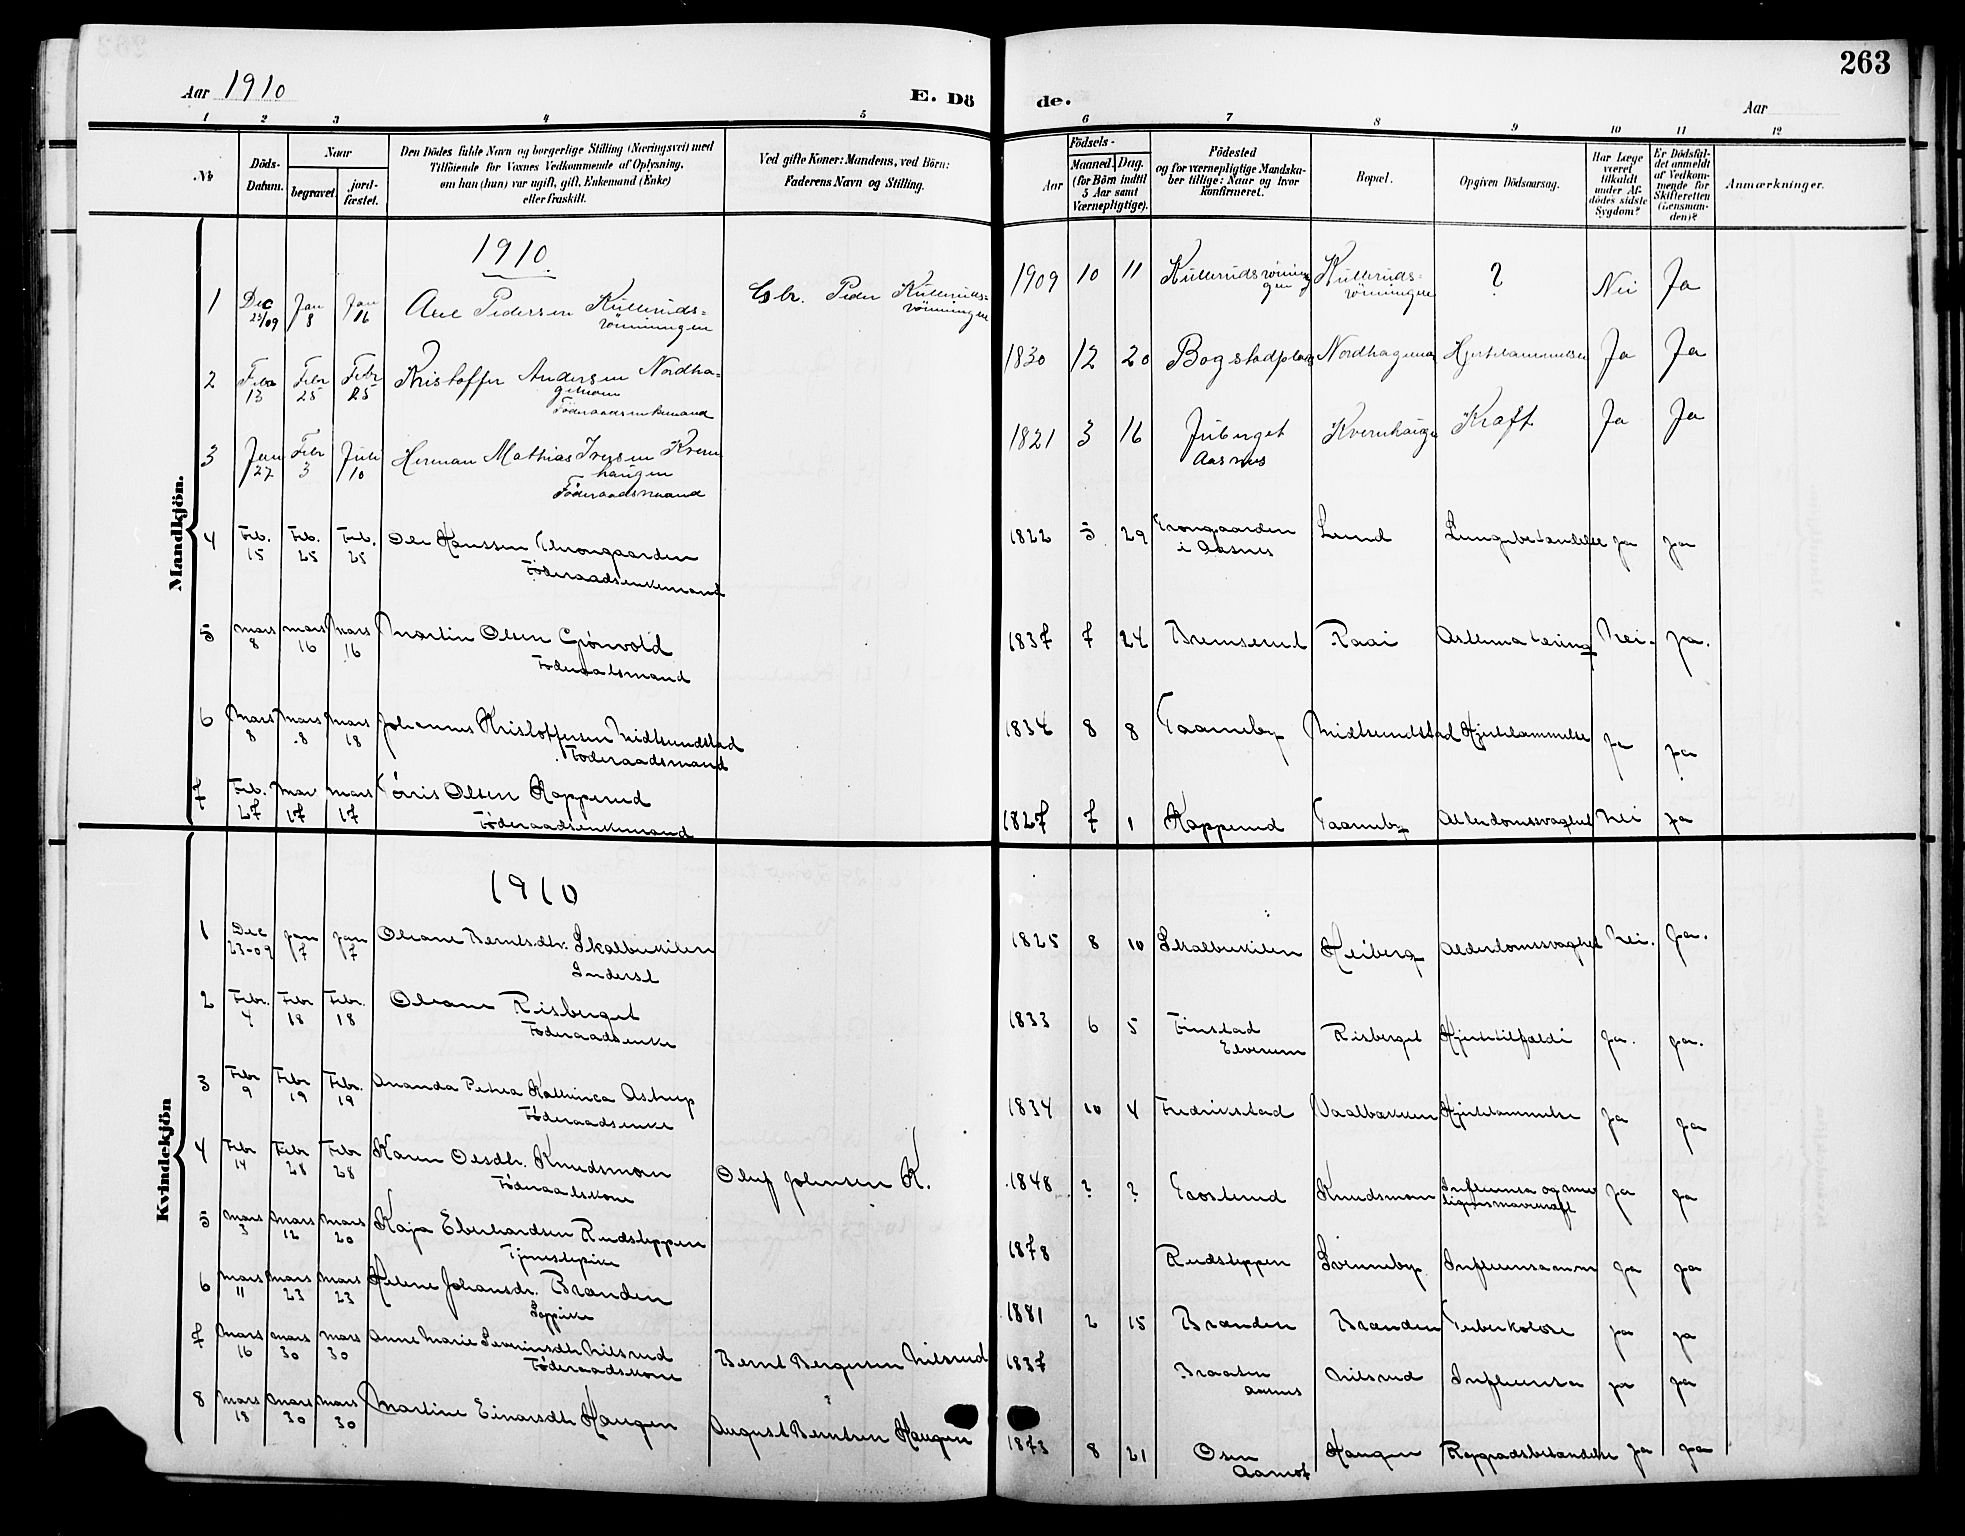 263
Aar 1910
E. Dö de.
Aar
1 2 3 4 5 6 7 8 9 10 11 12
No
Döds-
Datum.
Naar
begravet.
jord-
fæstet.
Den Dödes fulde Navn og borgerlige Stilling (Næringsvei) med
Tilföiende for Voxnes Vedkommende af Oplysning,
om han (hun) var ugift, gift, Enkemand (Enke)
eller fraskilt.
Ved gifte Koner: Mandens, ved Börn:
Faderens Navn og Stilling.
Födsels-
Aar
Maaned. Dag.
(for Börn indtil
5 Aar samt
Værnepligtige).
Födested
og for værnepligtige Mandska-
ber tillige: Naar og hvor
konfirmeret.
Bopæl.
Opgiven Dödsaarsag.
Har Læge
været
tilkaldt
under Af-
dödes sidste
Sygdom?
Er Dödsfal-
det anmeldt
af Vedkom-
mende for
Skifteretten
(Lensman-
den)?
Anmærkninger.
Mandkjön.
1910
1 Dec 23/09 Jan 8 Jan 16 Pedersen Kulleruds=
rönningen
Gbr. Peder Kulleruds=
rönningen
1909 10 11 Kullerudsrönnin
gen Kulleruds=
rönningen ? Nei Ja
2 Febr 13 Febr 25 Febr 25 Kristoffer Andersen Nordha=
gehaom
Föderaadsenkemand
1830 12 20 Bogstadplads Nordhagen Hjertelammelse Ja Ja
3 Jan 27 Febr 3 10 Herman Mathias Iversen Kvern
haugen
Föderaadsmand
1821 3 16 Juberget
Aasnes Kvernhaugen Kraft Ja Ja
4 Feb. 15 Feb. 25 Feb. 25 Ole Hanssen
Föderaadsenkemand
1822 5 29
i Aasnes Lund Lungebetændelse ja ja
5 Mars 8 Mars 16 Mars 16 Martin Olsen Grönvold
Föderaadsmand
1837 7 24 Bremserud Raai Astma tæring Nei. ja.
6 Mars 8 Mars 8 Mars 18 Johannes Kristoffersen Midtsundstad
Föderaadsmand
1834 8 8 Gaarneby Midtsundstad Hjertelammelse ja ja
7 Feb. 27 Mar 17 Mars 17 Olsen Kapperud
Föderaadsenkemand
1827 7 1 Kapperud Gaarneby Alderdomssvaghet Nei ja
Kvindekjön
1910
1 Dec 23-09 Jan 7 Jan 7 Oleane Berntsdtr. Skalbukilen
Inderst
1825 8 10 Skalbukilen Heiberg Alderdomssvaghet Nei. ja.
2 Febr. 4 Febr 18 Febr. 18 Oleane Risberget
Föderaadsenke
1833 6 5 Finstad
Elverum Risberget Hjertetilfælde ja. ja.
3 Febr 9 Febr 19 Febr. 19 Ananda Petrea Kathinca Astrup
Föderaadsenke
1834 10 4 Fredrikstad Vaalbakken Hjertelammelse ja ja
4 Febr 14 Febr 28 Febr 28 Karen Olsdtr. Knudsmoen
Föderaadskone
Oluf Johnsen K.
1848 ? ? Knudsmoen Influensa og mu
ligens mavekraft ja ja
5 Mars 3 Mars 12 Mars 20 Kaja Eberhardsen Rudsteppen
Tjenestepike
1878 Rudsteppen Svenneby Influensa m.m ja ja
6 Mars 11 Mars 23 Mars 23 Helene Johansdr. Branden
1881 2 15 Branden Branden Tuberkolose ja ja
7 Mars 16 Mars 30 Mars 30 Anne Marie Severinsdtr. Nilsrud
Föderaadskone
Bernt Bergersen Nilsrud
1837 Braaten
Aasnes Nilsrud Influensa ja ja
8 Mars 18 Mars 30 Mars 30 Martine Einarsdtr. Haugen
August Berntsen Haugen
1873 8 21 Osen
Aamot Haugen Rygradsbetændelse ja ja